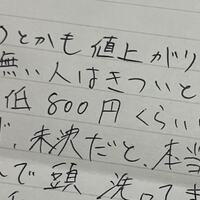 とかも値上がり
無い人はきついと
低800円くらい
、未決だと、本当
んで頭 洗ってま